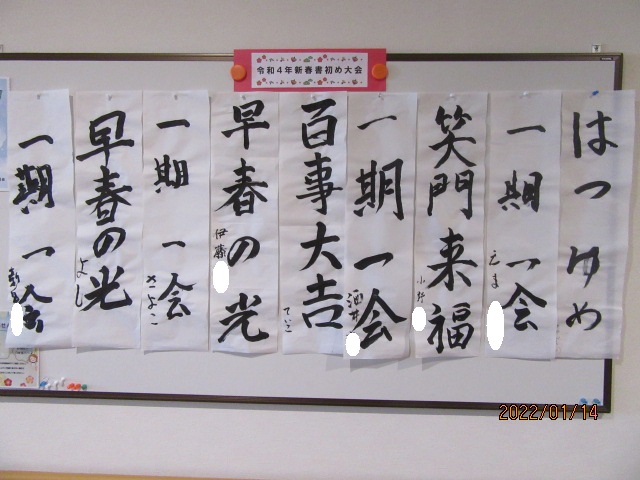 令和４年新春書初め大会
はつゆめ
一期一会
えま
笑門来福
小野
一期一会
酒井
百事大吉
ていこ
早春の光
伊藤
一期一会
さよこ
早春の光
よし
一期一会
2022/01/14